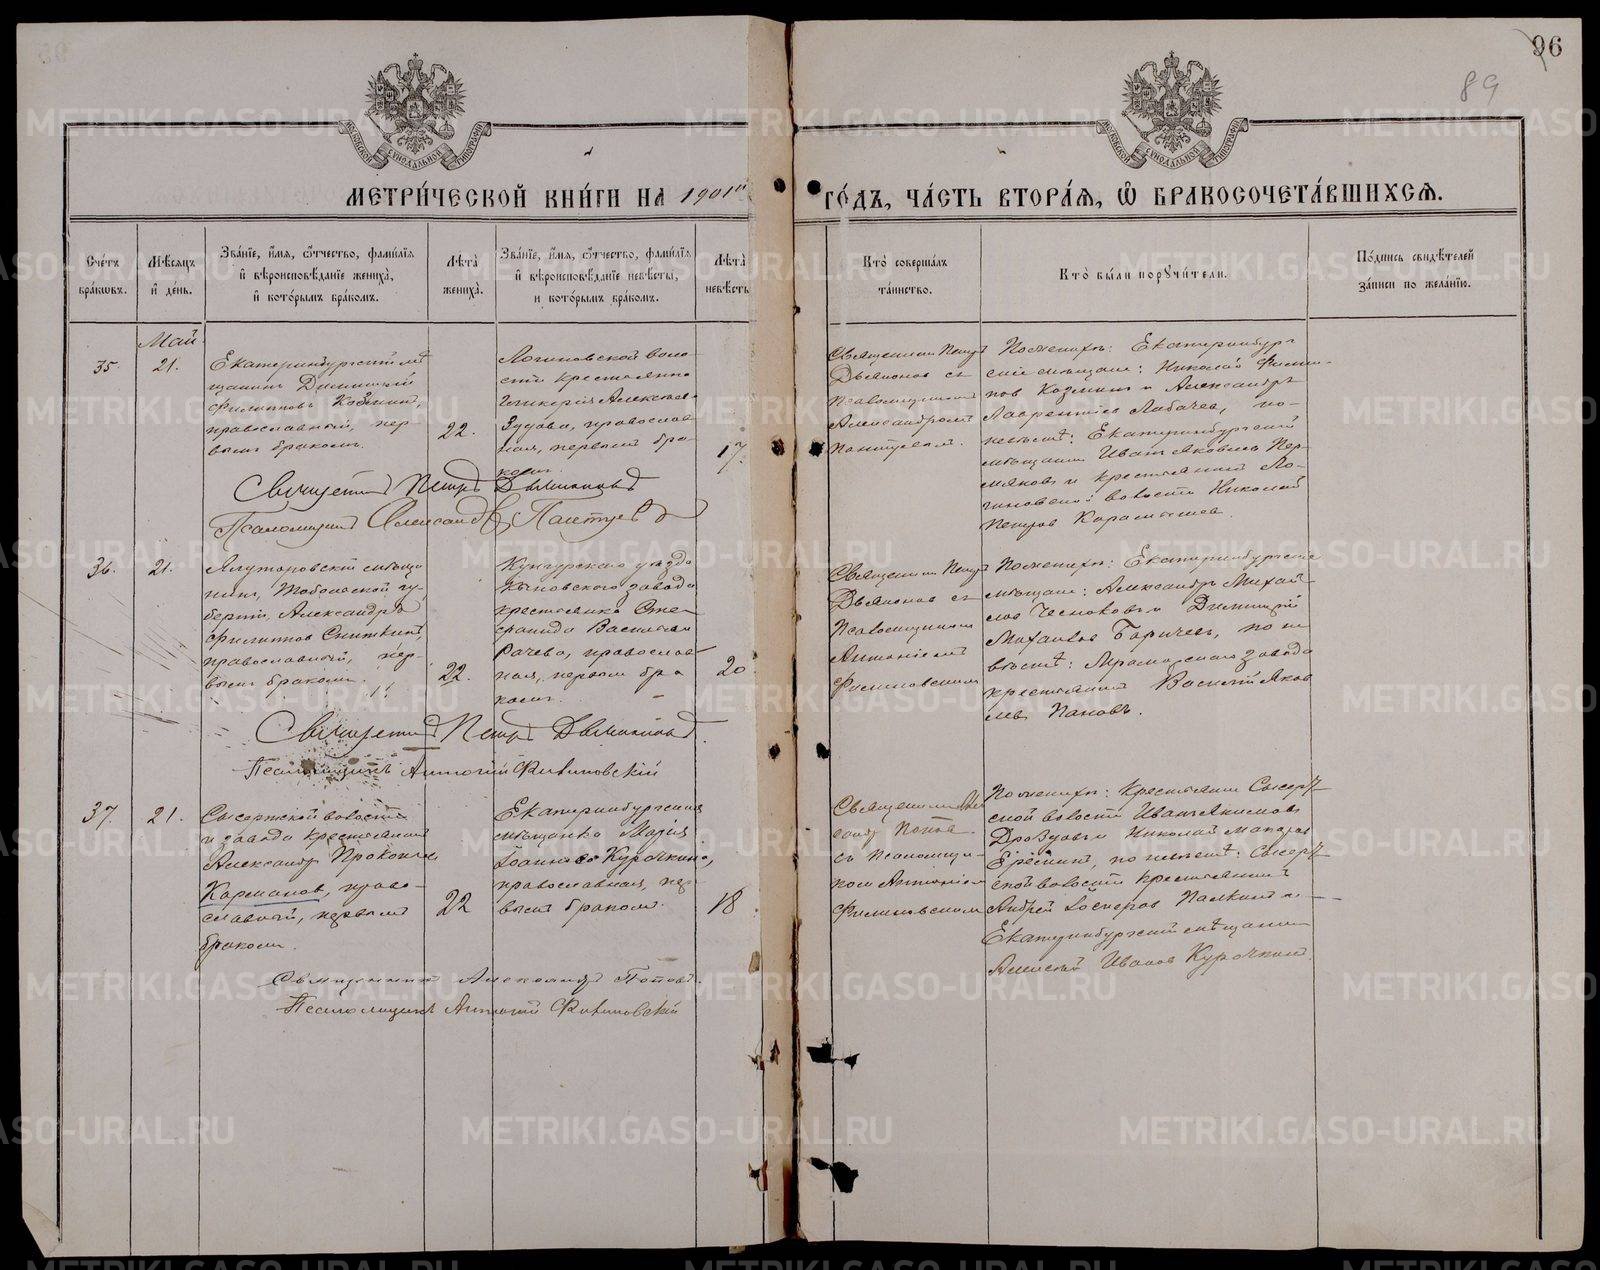 96
89
МЕТРИ́ЧЕСКОЙ КНИ́ГИ НА 1901й ГО́ДЪ, ЧА́СТЬ ВТОРА́Я, Ѽ БРАКОСОЧЕТА́ВШИХСЯ.
Сче́тъ бра́ковъ.
Мѣ́сяцъ и҆ де́нь.
Зва́нїе, и҆́мя, ѻ҆́тчество, фами́лїя и҆ вѣроисповѣ́данїе жениха̀, и҆ кото́рымъ бра́комъ.
Лѣ́та жениха̀.
Зва́нїе, и҆́мя, ѻ҆́тчество, фами́лїя и҆ вѣроисповѣ́данїе невѣ́сты, и кото́рымъ бра́комъ.
Лѣ́та невѣ́сты
Кто̀ соверша́лъ та́инство.
Кто̀ бы́ли поручи́тели.
По́дпись свидѣ́телей за́писи по жела́нїю.
Май
35.
21.
Екатеринбургскій мѣ-
щанинъ Димитрій
Филипповъ Козминъ,
православный, пер-
вымъ бракомъ.
22.
Логиновской воло-
сти крестьянка
Гликерія Алексѣева
Зудова, православ-
ная, первымъ бра-
комъ.
17.
Священникъ Петръ
Дьяконовъ съ
Псаломщикомъ
Александромъ
По женихѣ: Екатеринбург-
скіе мѣщане: Николай Филип-
повъ Козминъ и Александръ
Лаврентіевъ Лабачевъ, по
невѣстѣ: Екатеринбургскій
мѣщанинъ Иванъ Яковлевъ Пер-
мяковъ и крестьянинъ Ло-
гиновской волости Николай
Петровъ
Священникъ Петръ Дьяконовъ
Псаломщикъ Александръ
36.
21.
Ялуторовскій мѣща-
нинъ, Тобольской гу-
берніи, Александръ
Филипповъ
православный, пер-
вымъ бракомъ.
22.
Кунгурскаго уѣзда
Кыновскаго завода
крестьянка Сте-
фанида Васильева
Рачева, православ-
ная, первымъ бра-
комъ.
20
Священникъ Петръ
Дьяконовъ съ
Псаломщикомъ
Антоніемъ
Фили­новскимъ
По женихѣ: Екатеринбургскіе
мѣщане: Александръ Михай-
ловъ Чесноковъ и Димитрій
Михайловъ Баричевъ, по не-
вѣстѣ: Мраморскаго завода
крестьянинъ Василій Яков-
левъ Пановъ.
Священникъ Петръ Дьяконовъ
Псаломщикъ Антоній Филиновскій
37.
21.
Сысертской волости
и завода крестьянинъ
Александръ Прокопьевъ
Кармановъ, право-
славный, первымъ
бракомъ.
22
Екатеринбургская
мѣщанка Марія
Іоаннова Курочкина,
православная, пер-
вымъ бракомъ.
18
Священникъ Алек-
сандръ Поповъ
съ Псаломщи-
комъ Антоніемъ
Филиновскимъ
По женихѣ: крестьяне Сысерт-
ской волости Иванъ Якимовъ
Дроздовъ и Николай Макаровъ
по невѣстѣ: Сысерт-
ской волости крестьянинъ
Андрей Палкинъ и
Екатеринбургскій мѣщанинъ
Алексѣй Ивановъ Курочкинъ.
Священникъ Александръ Поповъ.
Псаломщикъ Антоній Филиновскій
METRIKI.GASO-URAL.RU